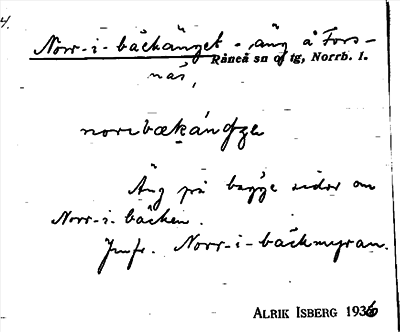 4.
Norr-i-bäckänget - äng å Fors-
Råneå sn o tg, Norrb. l.
näs,
Äng på bägge sidor om
Norr-i-bäcken.
Jmfr. Norr-i-bäckmyran.
ALRIK ISBERG 1936